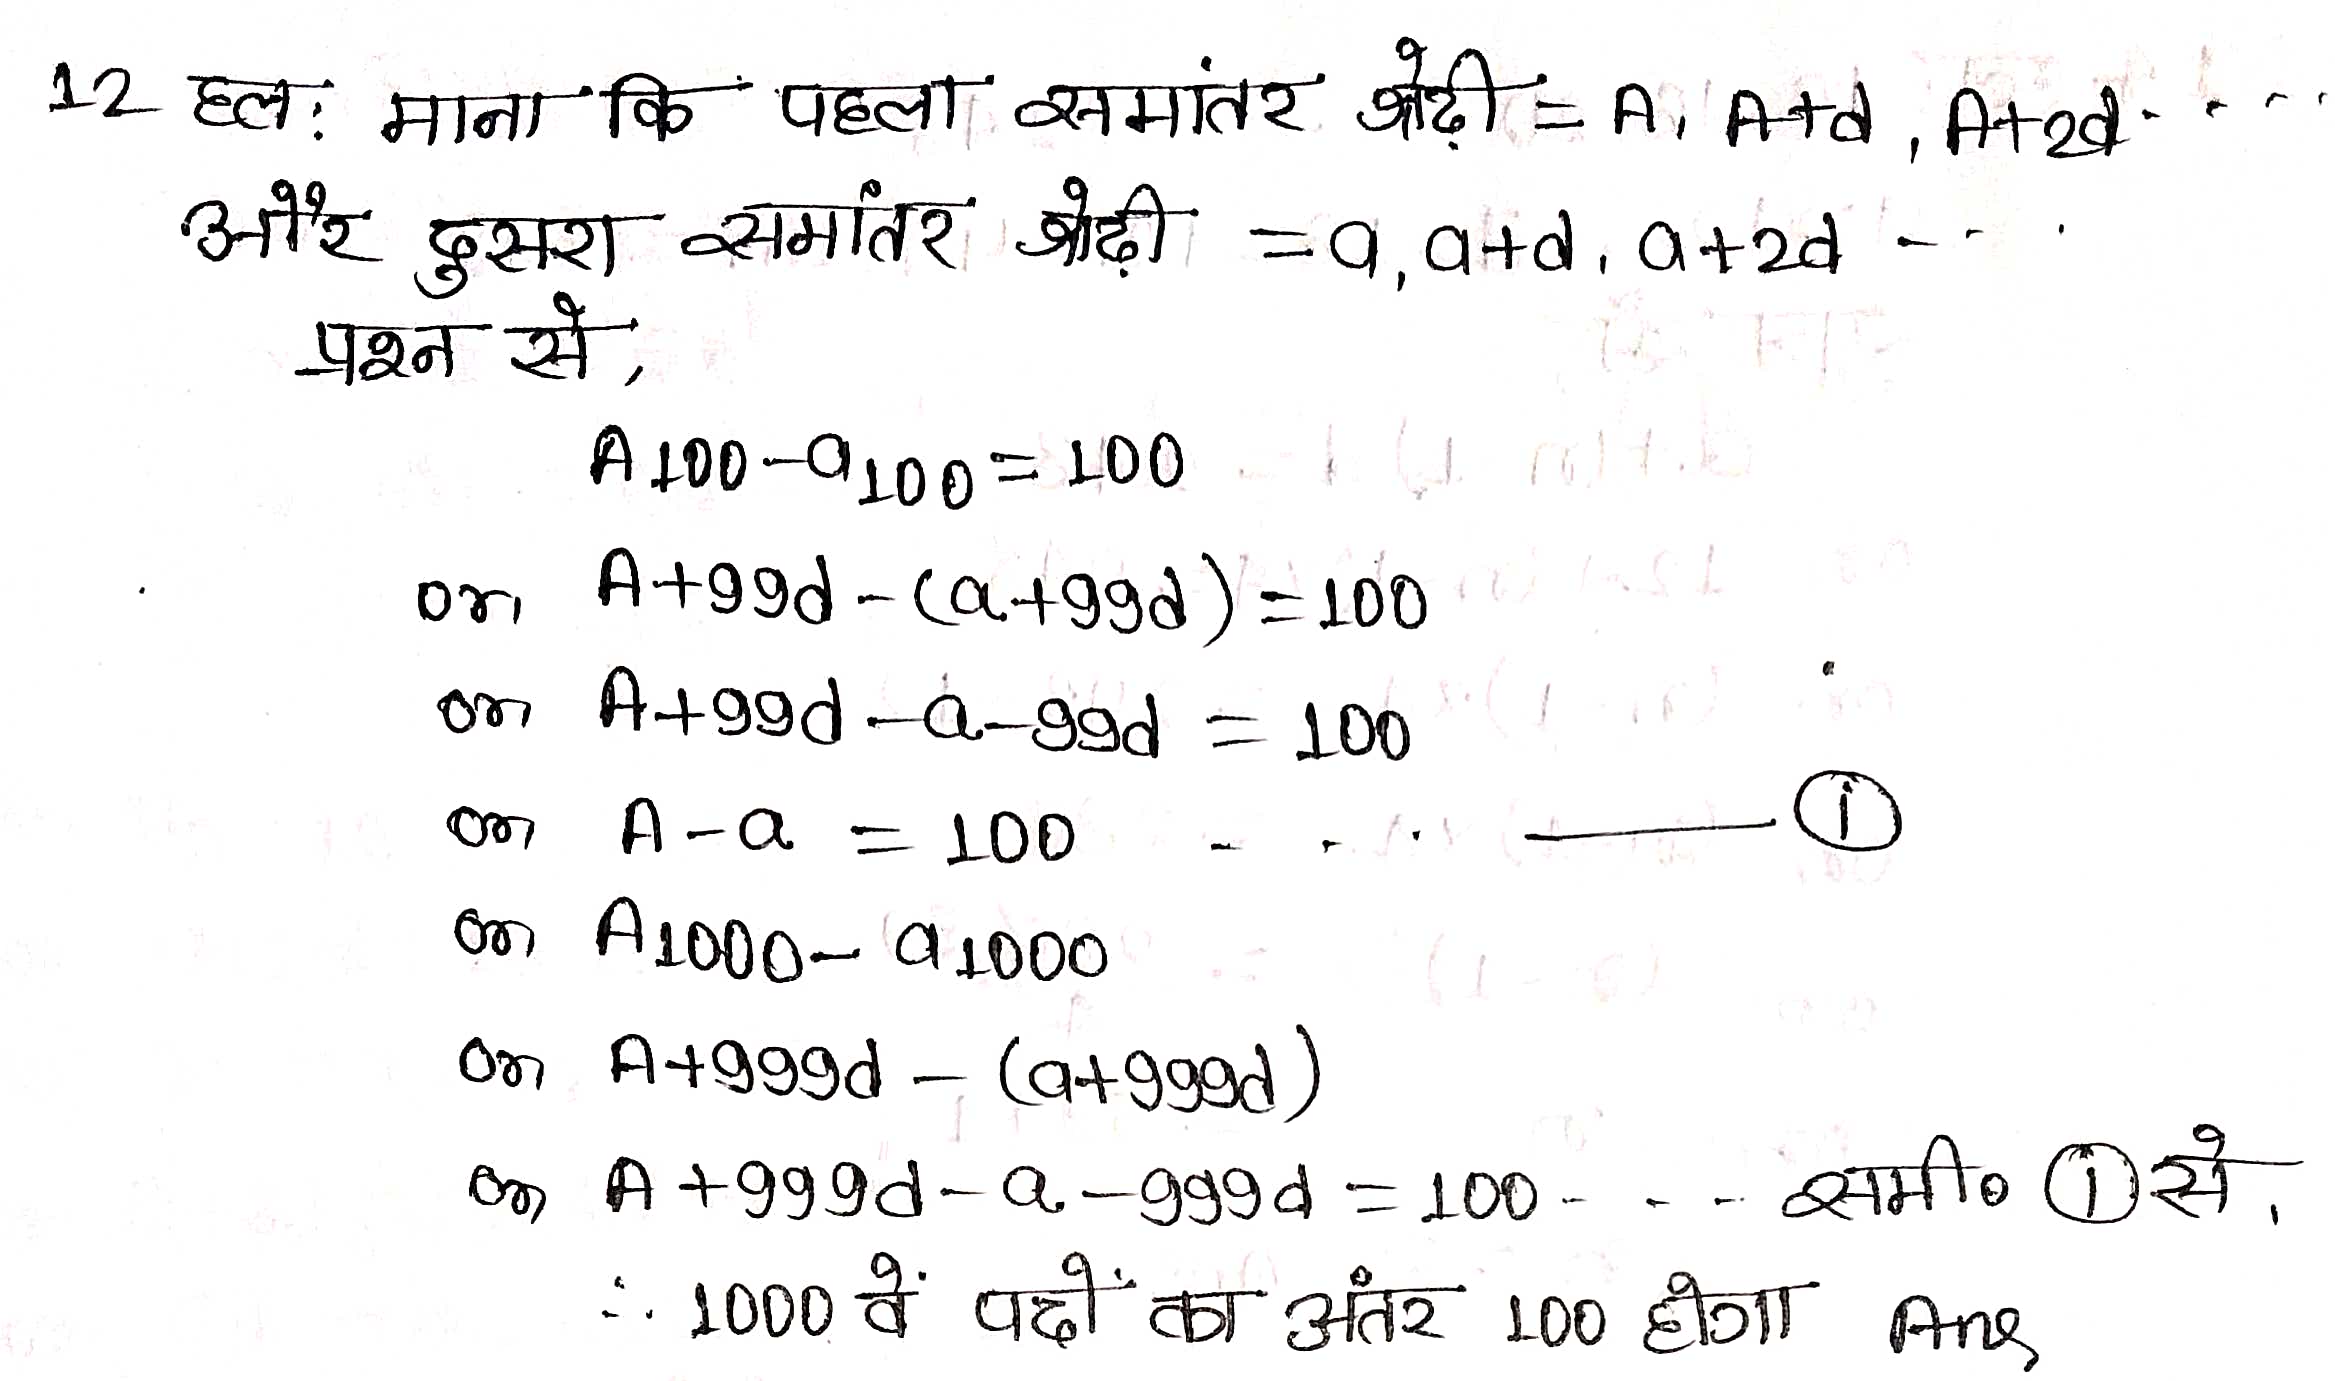 12 हल: माना कि पहला समांतर श्रेढ़ी = A, A+d, A+2d....
और दुसरा समांतर श्रेढ़ी = a, a+d, a+2d ...
प्रश्न से,
A100-a100=100
or, A+99d-(a+99d)=100
or, A+99d-a-99d = 100
or, A-a = 100 - . . —— (i)
or, A1000-a1000
or, A+999d-(a+999d)
or, A+999d-a-999d=100- . - समी० (i) से,
∴ 1000 वें पदों का अंतर 100 होगा Ans